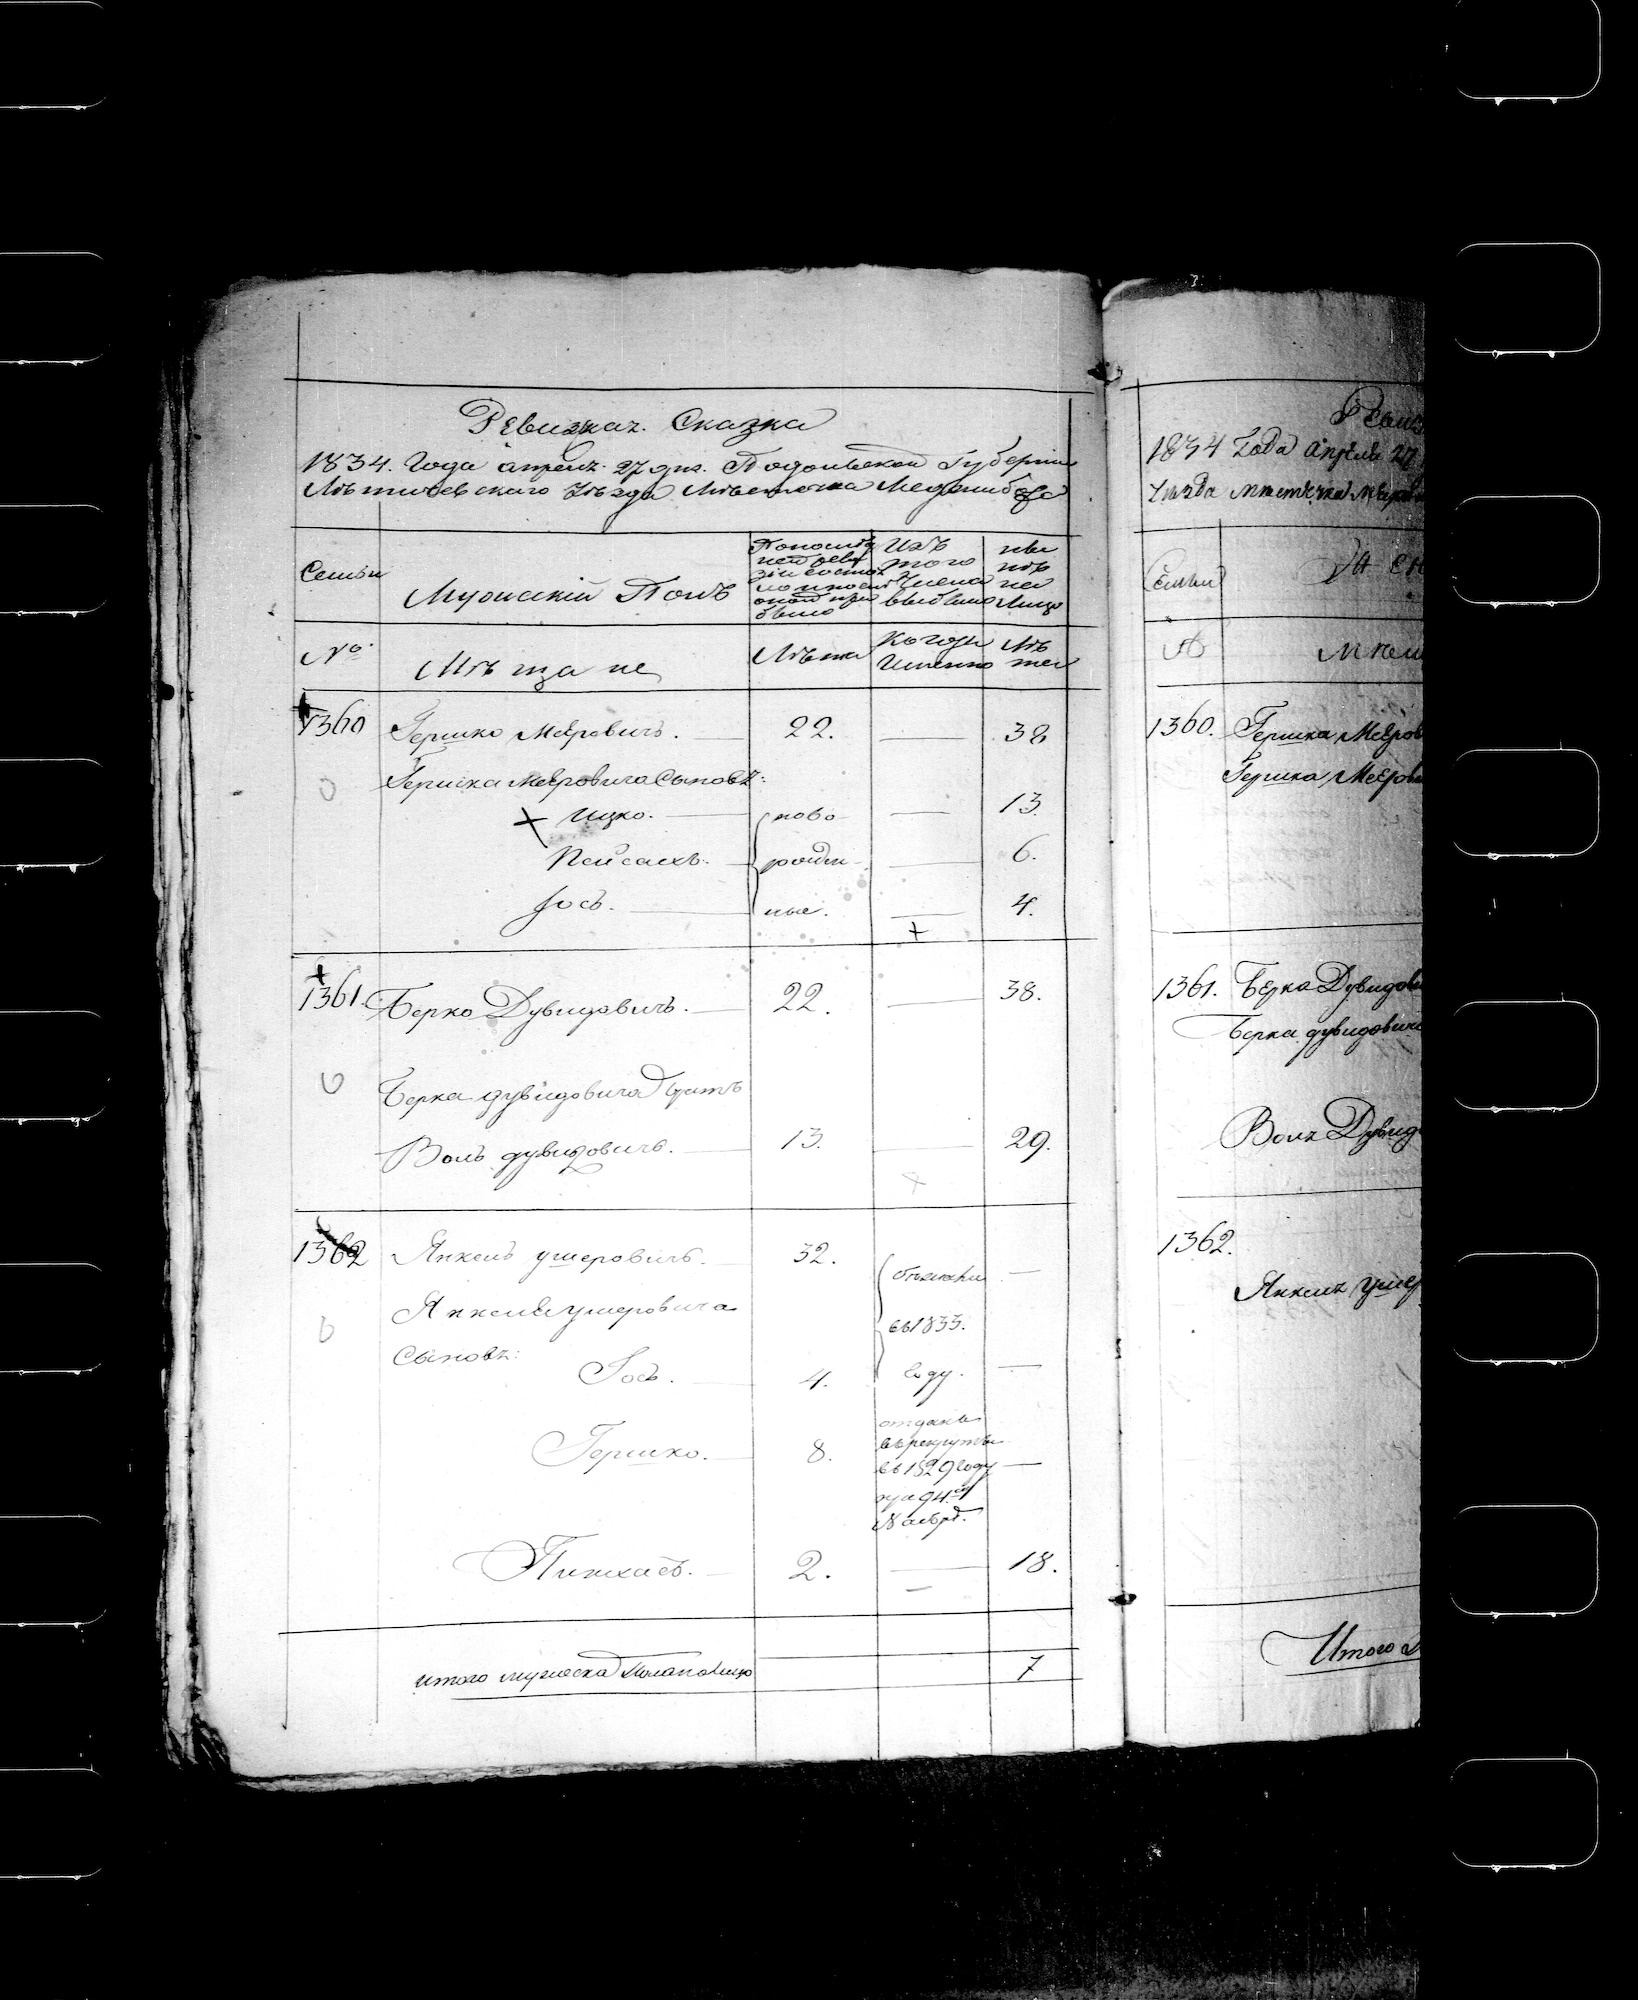 Ревизкая. Сказка
1834. Года апреля. 27 дня. Подольской Губернии
Летичевскаго Уезда Местечка Меджибожа
Семьи
Мужескій Полъ
По последней ревизіи состояло и после оной прибыло
Изъ того числа выбыло
Ныне на лицо
№
Мѣщане
Лѣта
Когда Именно
Лѣта
1360 Гершко Мееровичъ. 22. 38
Гершка Мееровича Сыновъя:
Ицко. ново 13.
Пейсахъ. рожден 6.
Іось. ные. 4.
1361. Берко Дувидовичъ. 22. 38.
Берка дувидовича братъ
Волъ дувидовичъ. 13. 29.
1362 Янкель ушеровичъ. 32. бежали
Янкеля ушеровича въ 1833.
Сыновья:
Іось. 4. году.
Гершко. 8. отданъ
въ рекруты
въ 1829 году
94.й
Наборъ.
Пинхасъ. 2. 18.
итого мужеска пола на лицо 7
Ревиз
1834 Года Апреля 27
Уезда местечка Меджи
Семьи
Же
№
Мѣщ
1360. Гершка Меѣров
Гершка Меѣрови
1361. Берка Дувидови
Берка дувидовича
Вола Дувид
1362.
Янкеля Ушер
Итого